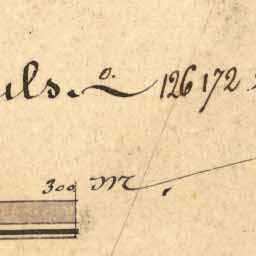 uls. o. 126 172
300 M.